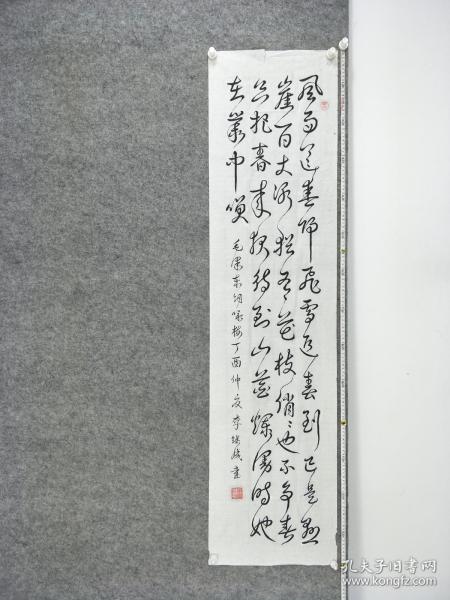 风雨送春归飞雪迎春到已是悬
崖百丈冰犹有花枝俏俏也不争春
只把春来报待到山花烂漫时她
在丛中笑
毛泽东词咏梅丁酉仲夏李瑞书
孔夫子旧书网
www.kongfz.com